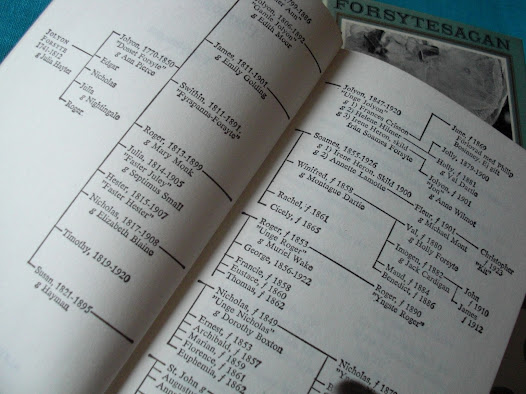 FORSYTESAGAN
JOLYON
FORSYTE
1741-1812
g Julia Hayter
Jolyon, 1770-1850
"Dosset Forsyte"
g Ann Pierce
Edgar
Nicholas
Julia
g Nightingale
Roger
g Edith Moor
James, 1811-1901
g Emily Golding
Swithin, 1811-1891,
"Fyrspanns-Forsyte"
Roger, 1813-1899
g Mary Monk
Julia, 1814-1905
"Faster Juley"
g Septimus Small
Hester, 1815-1907
"Faster Hester"
Nicholas, 1817-1908
g Elizabeth Blaine
Timothy, 1819-1920
Susan, 1821-1895
g Hayman
Jolyon, 1847-1920
"Unge Jolyon"
g 1) Frances Crisson
g 2) Helene Hilmer
g 3) Irene Heron, skild
från Soames Forsyte
June, f 1869
Jolly, 1879-1900
Holly, f 1881
g Val Dartie
Jolyon, f 1901
"Jon"
g Anne Wilmot
Soames, 1855-1926
g 1) Irene Heron, Skild 1900
g 2) Annette Lamotte
Fleur, f 1901
g Michael Mont
Christopher
f 1923
"Kit"
Winifred, f 1858
g Montague Dartie
Val, f 1880
g Holly Forsyte
Imogen, f 1882
g Jack Cardigan
Maud, f 1884
Benedict, f 1886
John
f 1910
James
f 1912
Rachel, f 1861
Cicely, f 1865
Roger, f 1853
"Unge Roger"
g Muriel Wake
Roger, f 1890
"Yngste Roger"
George, 1856-1922
Francie, f 1858
Eustace, f 1860
Thomas, f 1862
Nicholas, f 1849
"Unge Nicholas"
g Dorothy Boxton
Nicholas,
Ernest, f 1853
Archibald, f 1857
Marian, f 1859
Florence, f 1861
Euphemia, f 1862
St. John